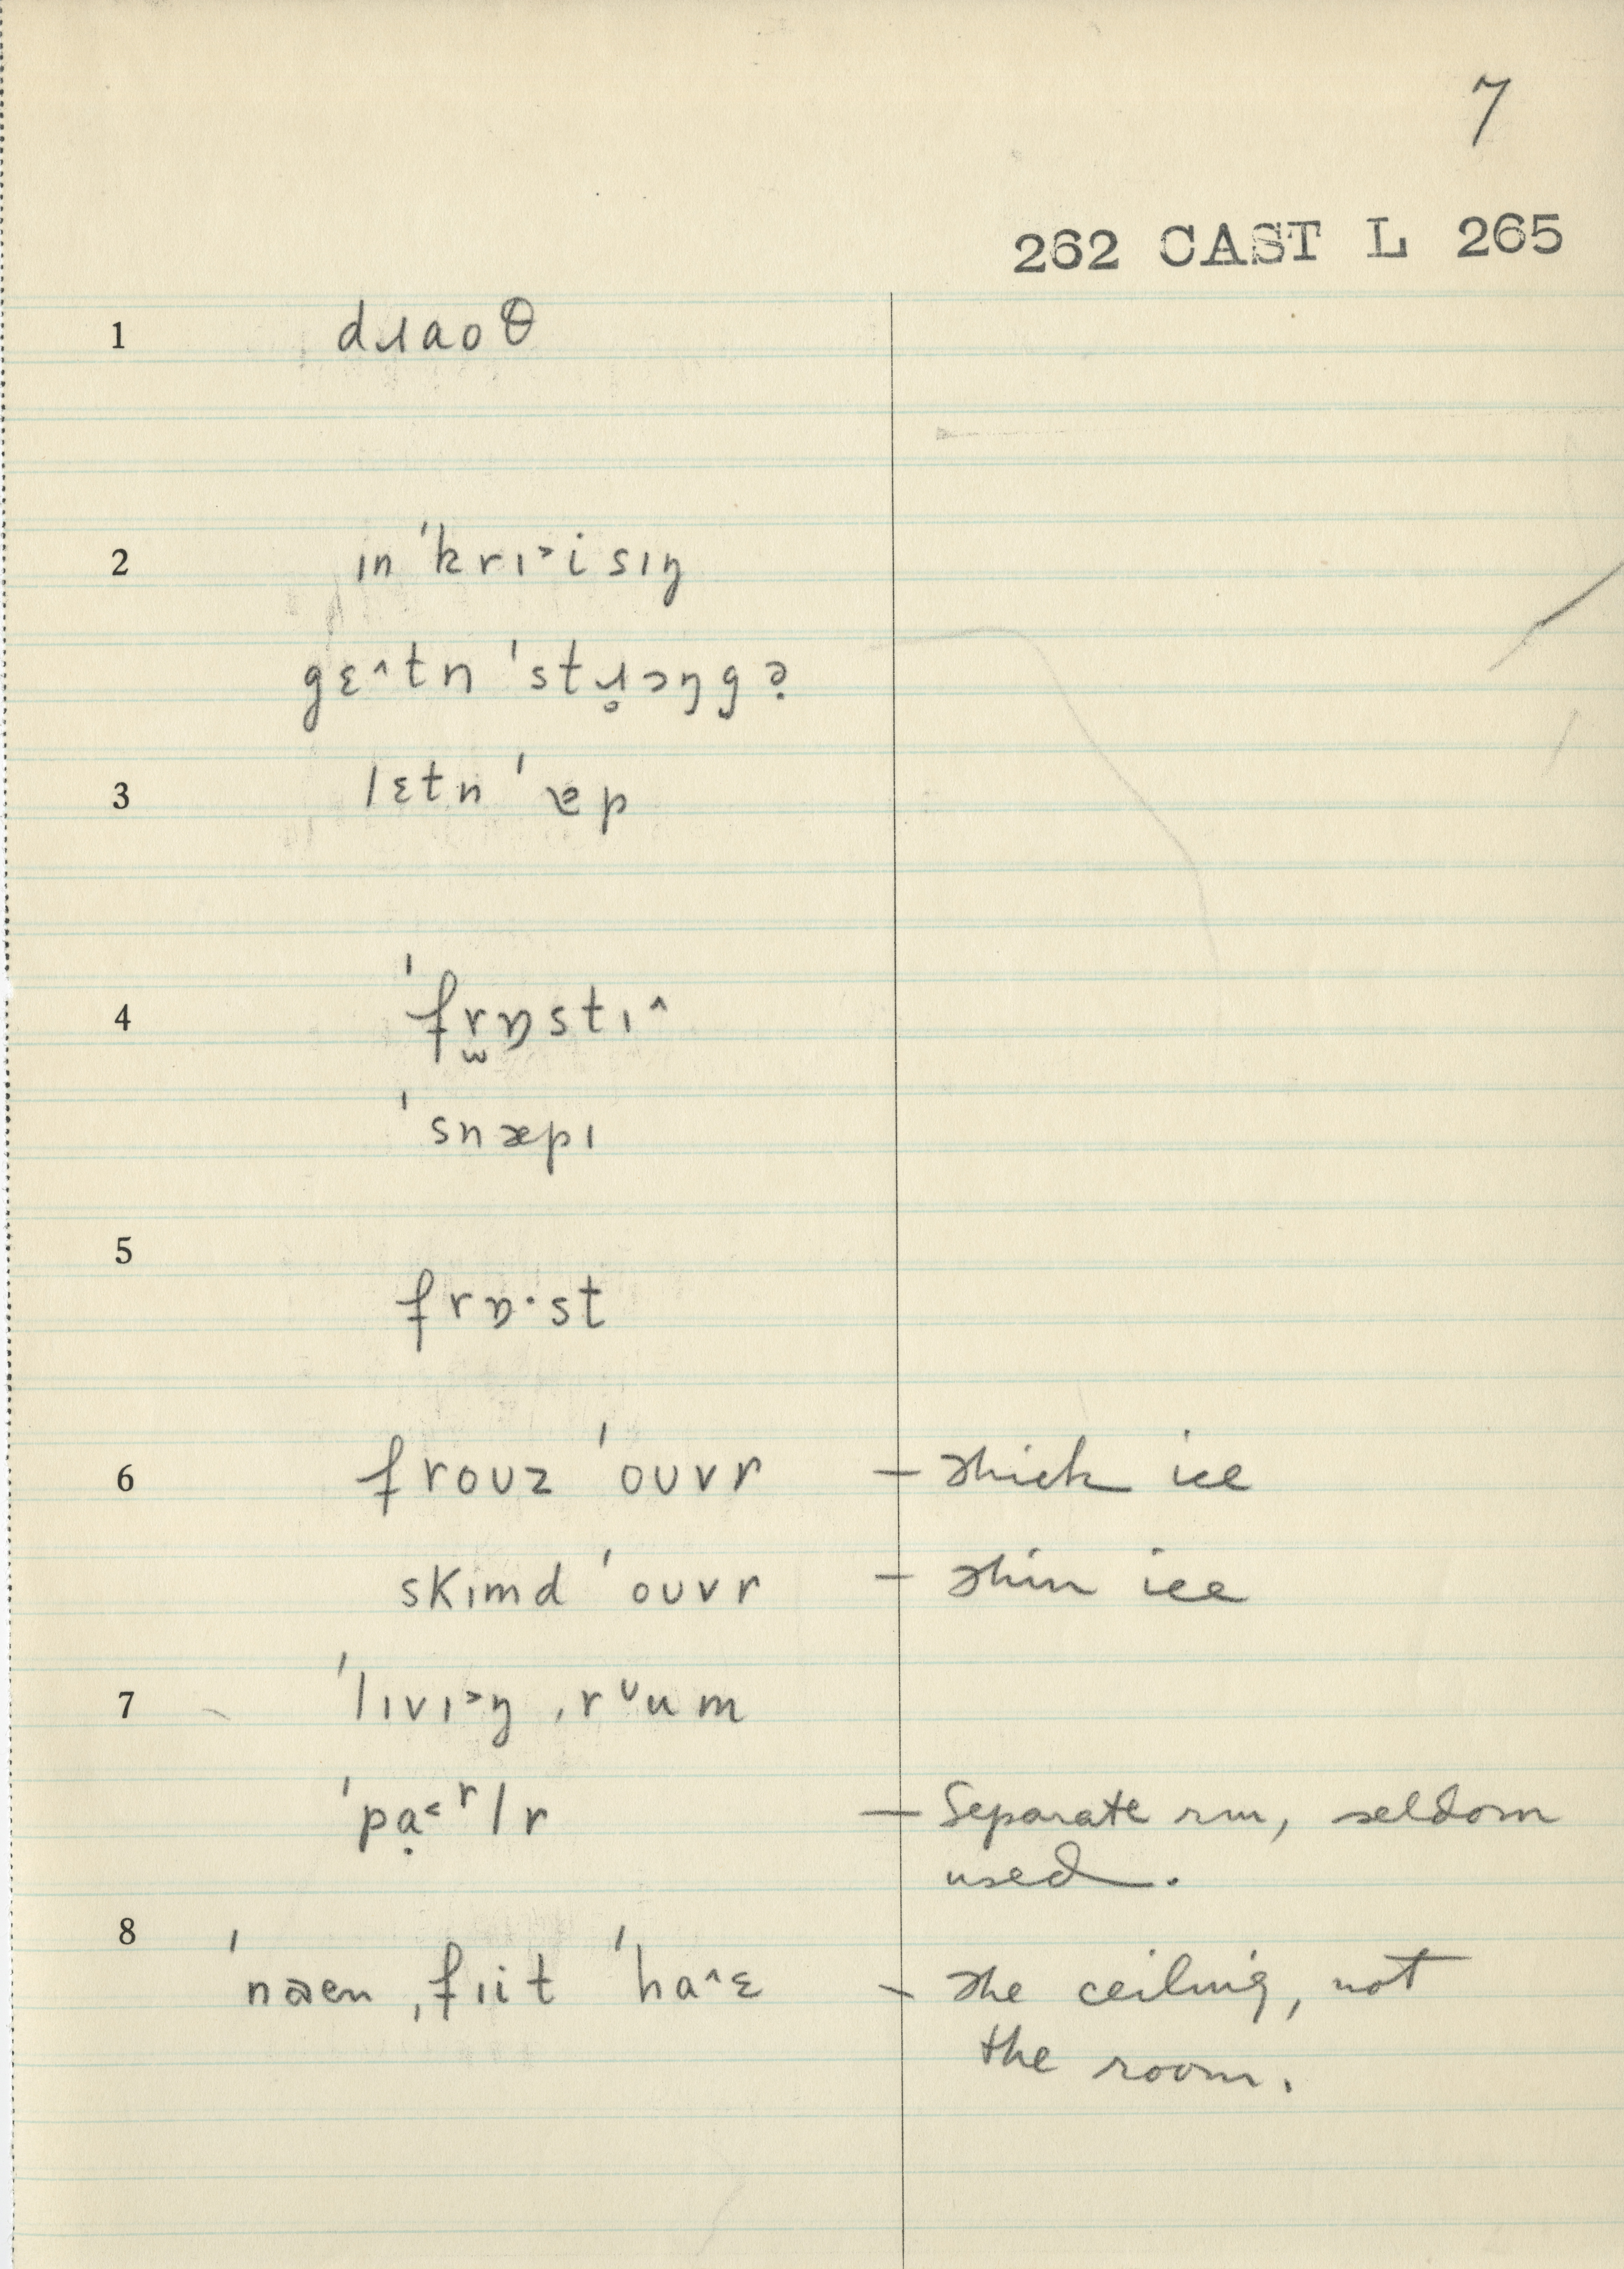 7
262 CAST L 265
1 dɹaoθ
2 ɪn ˈkrɪ˃isɪŋ
gɛ^tn ˈstɹ̥ɔŋgə̣
3 lɛtn ˈɐp
4 ˈfr̫ɒstɪ^
ˈsnæpɪ
5
frɒ·st
6 froʊz ˈoʊvr – thick ice
skɪmd ˈoʊvr – thin ice
7 ˈlɪvɪ˃ŋ ˌrᶷum
ˈpạ˂ʳlr – Separate rm, seldom
used.
8
ˈnaɛn ˌfɪit ˈha^ɛ – the ceiling, not
the room.